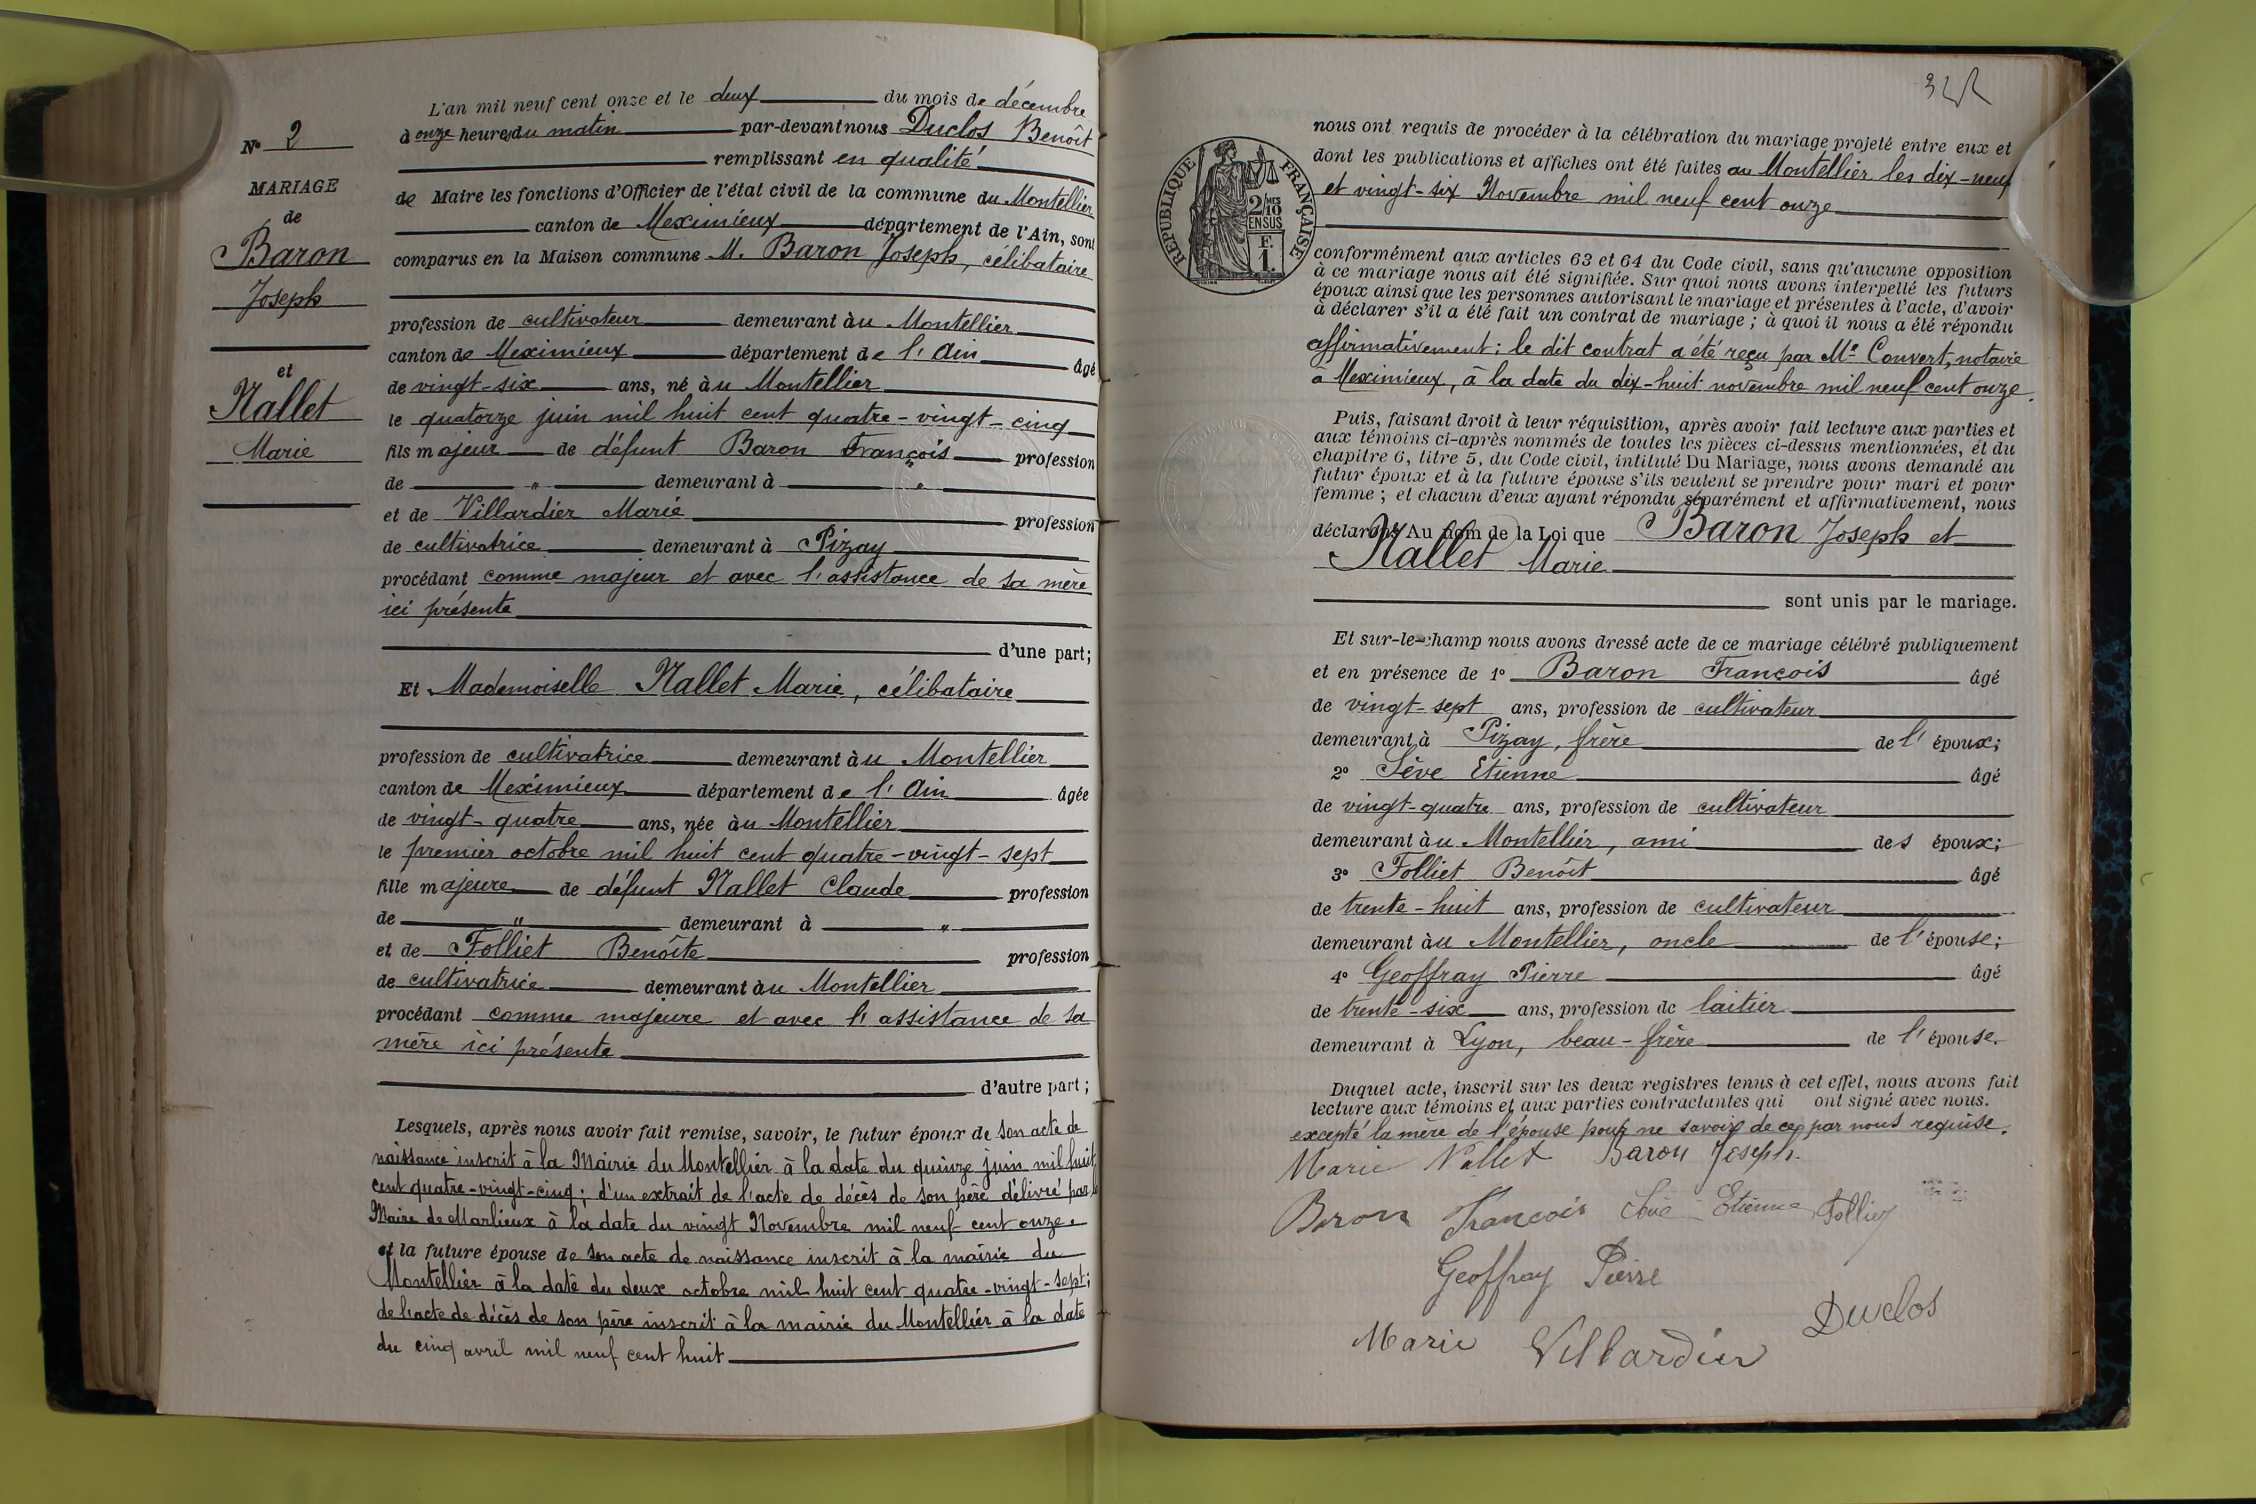 N° 2
MARIAGE
de
Baron
Joseph
et
Nallet
Marie
L'an mil neuf cent onze et le deux du mois de décembre
à onze heures du matin par-devant nous Duclos Benoît
remplissant en qualité
de Maire les fonctions d'Officier de l'état civil de la commune du Montellier
canton de Meximieux département de l'Ain, sont
comparus en la Maison commune M. Baron Joseph, célibataire
profession de cultivateur demeurant àu Montellier
canton de Meximieux département de l'Ain âgé
de vingt-six ans, né àu Montellier
le quatorze juin mil huit cent quatre-vingt-cinq
fils majeur de défunt Baron François profession
de " demeurant à "
et de Villardier Marie profession
de cultivatrice demeurant à Pizay
procédant comme majeur et avec l'assistance de sa mère
ici présente
d'une part;
Et Mademoiselle Nallet Marie, célibataire
profession de cultivatrice demeurant àu Montellier
canton de Meximieux département de l'Ain âgée
de vingt-quatre ans, née àu Montellier
le premier octobre mil huit cent quatre-vingt-sept
fille majeure de défunt Nallet Claude profession
de " demeurant à "
et de Folliet Benoîte profession
de cultivatrice demeurant àu Montellier
procédant comme majeure et avec l'assistance de sa
mère ici présente
d'autre part;
Lesquels, après nous avoir fait remise, savoir, le futur époux de son acte de
naissance inscrit à la Mairie du Montellier à la date du quinze juin mil huit
cent quatre-vingt-cinq; d'un extrait de l'acte de décès de son père délivré par le
Maire de Marlieux à la date du vingt Novembre mil neuf cent onze
et la future épouse de son acte de naissance inscrit à la mairie du
Montellier à la date du deux octobre mil huit cent quatre-vingt-sept;
de l'acte de décès de son père inscrit à la mairie du Montellier à la date
du cinq avril mil neuf cent huit
RÉPUBLIQUE FRANÇAISE
2/10 MES
EN SUS
F.
1.
nous ont requis de procéder à la célébration du mariage projeté entre eux et
dont les publications et affiches ont été faites au Montellier les dix-neuf
et vingt-six Novembre mil neuf cent onze
conformément aux articles 63 et 64 du Code civil, sans qu'aucune opposition
à ce mariage nous ait été signifiée. Sur quoi nous avons interpellé les futurs
époux ainsi que les personnes autorisant le mariage et présentes à l'acte, d'avoir
à déclarer s'il a été fait un contrat de mariage; à quoi il nous a été répondu
affirmativement: le dit contrat a été reçu par Me Convert, notaire
à Meximieux, à la date du dix-huit novembre mil neuf cent onze.
Puis, faisant droit à leur réquisition, après avoir fait lecture aux parties et
aux témoins ci-après nommés de toutes les pièces ci-dessus mentionnées, et du
chapitre 6, titre 5, du Code civil, intitulé Du Mariage, nous avons demandé au
futur époux et à la future épouse s'ils veulent se prendre pour mari et pour
femme; et chacun d'eux ayant répondu séparément et affirmativement, nous
déclarons Au nom de la Loi que Baron Joseph et
Nallet Marie
sont unis par le mariage.
Et sur-le-champ nous avons dressé acte de ce mariage célébré publiquement
et en présence de 1° Baron François âgé
de vingt-sept ans, profession de cultivateur
demeurant à Pizay, frère de l'époux;
2° Sève Etienne âgé
de vingt-quatre ans, profession de cultivateur
demeurant àu Montellier, ami des époux;
3° Folliet Benoît âgé
de trente-huit ans, profession de cultivateur
demeurant àu Montellier, oncle de l'épouse;
4° Geoffray Pierre âgé
de trente-six ans, profession de laitier
demeurant à Lyon, beau-frère de l'épouse.
Duquel acte, inscrit sur les deux registres tenus à cet effet, nous avons fait
lecture aux témoins et aux parties contractantes qui ont signé avec nous.
excepté la mère de l'épouse pour ne savoir de ce par nous requise.
Marie Nallet Baron Joseph.
Baron François Sève Etienne Folliet
Geoffray Pierre
Duclos
Marie Villardier